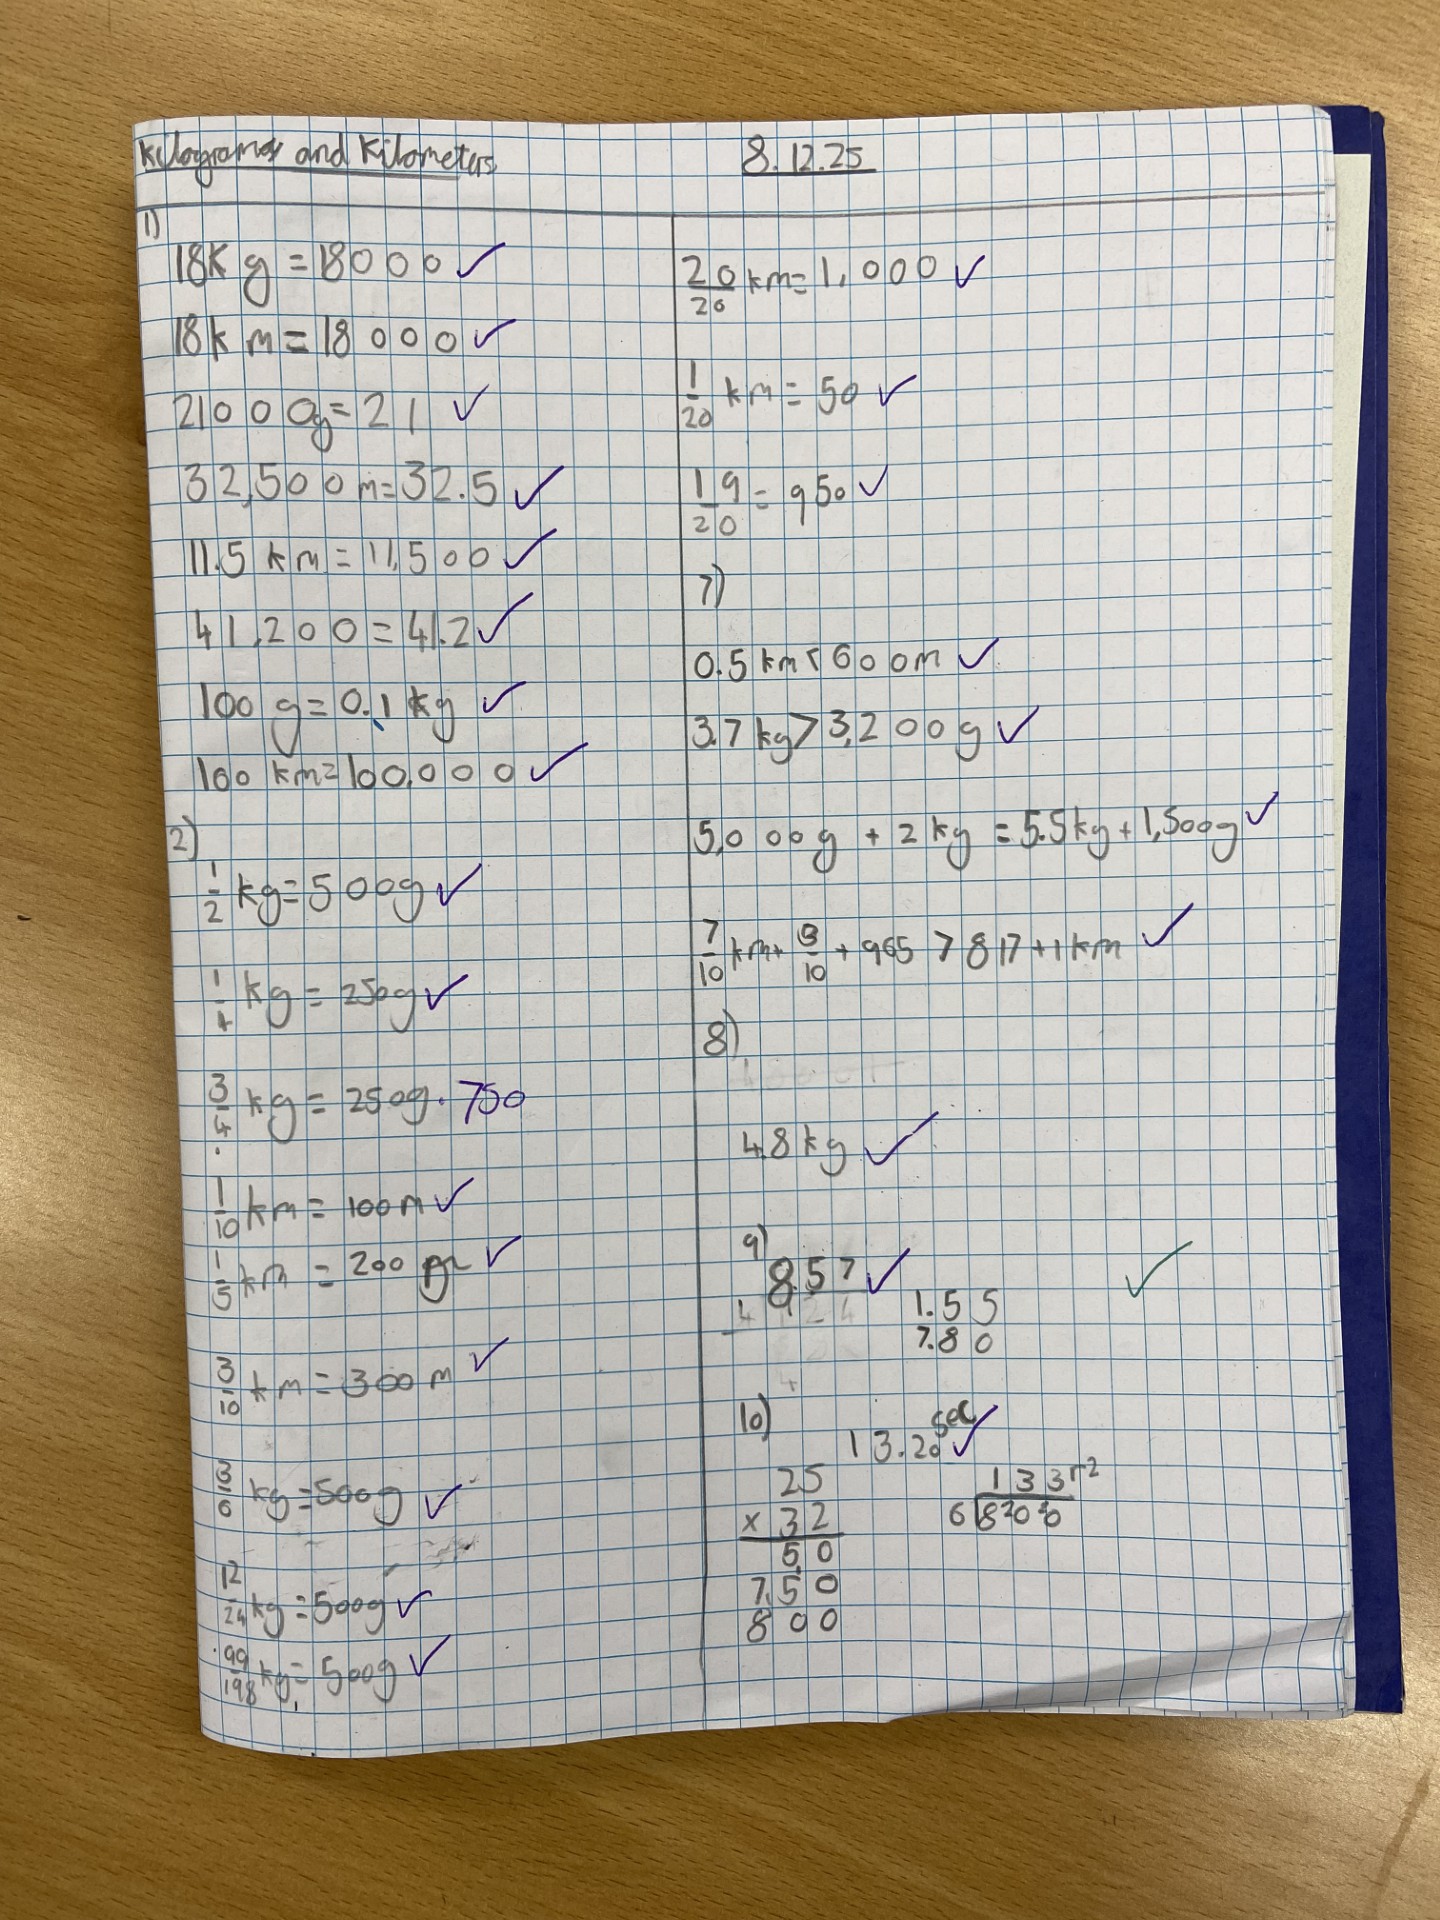 Kilograms and Kilometers
8.12.25
1)
18kg = 18000 ✓
18km = 18000 ✓
21000g = 21 ✓
32,500m = 32.5 ✓
11.5 km = 11,500 ✓
41,200 = 41.2 ✓
100 g = 0.1 kg ✓
100 km = 100,000 ✓
2)
1/2 kg = 500g ✓
1/4 kg = 250g ✓
3/4 kg = 250g · 750
1/10 km = 100m ✓
1/5 km = 200 m ✓
3/10 km = 300 m ✓
3/6 kg = 500g ✓
12/24 kg = 500g ✓
99/198 kg = 500g ✓
20/20 km = 1,000 ✓
1/20 km = 50 ✓
19/20 = 950 ✓
7)
0.5 km < 600m ✓
3.7 kg > 3,200g ✓
5,000g + 2 kg = 5.5kg + 1,500g ✓
7/10 km + 3/10 + 965 > 817 + 1 km ✓
8)
4.8 kg ✓
9)
8.57 ✓
1.55
7.80
✓
10)
13.20 sec ✓
25
x 32
50
750
800
133 r2
6 8 ²0 ²0